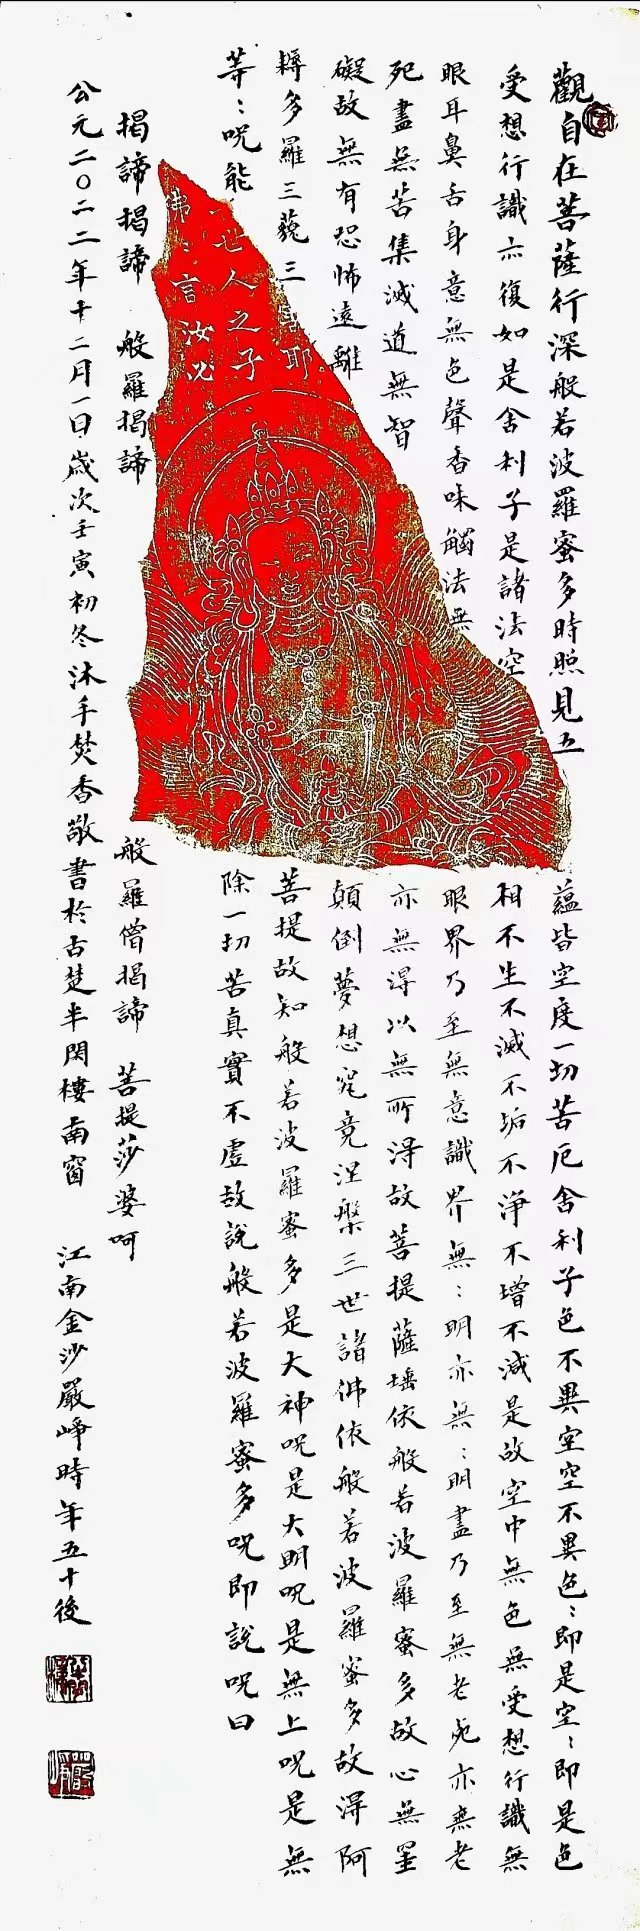 觀自在菩薩行深般若波羅蜜多時照見五蘊皆空度一切苦厄舍利子色不異空空不異色:即是空:即是色
受想行識亦復如是舍利子是諸法空相不生不滅不垢不淨不增不減是故空中無色無受想行識無
眼耳鼻舌身意無色聲香味觸法無眼界乃至無意識界無:明亦無:明盡乃至無老死亦無老
死盡無苦集滅道無智亦無得以無所得故菩提薩埵依般若波羅蜜多故心無罣
礙故無有恐怖遠離顛倒夢想究竟涅槃三世諸佛依般若波羅蜜多故得阿
耨多羅三藐三菩提故知般若波羅蜜多是大神咒是大明咒是無上咒是無
等:咒能除一切苦真實不虛故說般若波羅蜜多咒即說咒曰
揭諦揭諦 般羅揭諦 般羅僧揭諦 菩提莎婆呵
公元二〇二二年十二月一日歲次壬寅初冬沐手焚香敬書於古楚半閑樓南窗 江南金沙嚴崢時年五十後
耶
世人之子
佛:言汝必